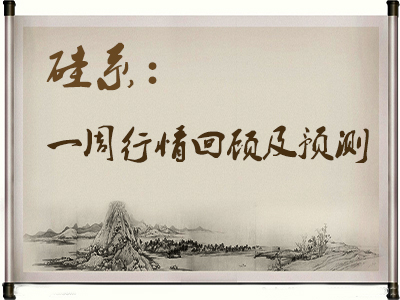 硅系：
一周行情回顾及预测